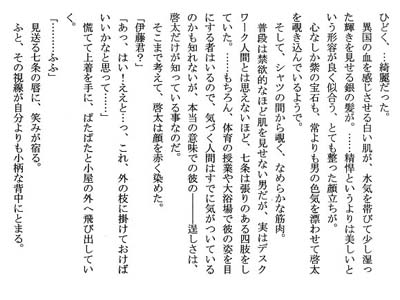 ひどく、…綺麗だった。
異国の血を感じさせる白い肌が、水気を帯びて少し湿っ
た輝きを見せる銀の髪が。……精悍というよりは美しいと
いう形容が良く似合う、とても整った顔立ちが。
心なしか紫の宝石も、常よりも男の色気を漂わせて啓太
を覗き込んでいるようで。
そして、シャツの間から覗く、なめらかな筋肉。
普段は禁欲的なほど肌を見せない男だが、実はデスク
ワーク人間とは思えないほど、七条は張りのある四肢をし
ていた。……もちろん、体育の授業や大浴場で彼の姿を目
にする者はいるので、気づく人間はすでに気がついている
のかも知れないが、本当の意味での彼の――逞しさは、
啓太だけが知っている事なのだ。
そこまで考えて、啓太は顔を赤く染めた。
「伊藤君?」
「あっ、はい!ええと…っ、これ、外の枝に掛けておけば
いいかなと思って……」
慌てて上着を手に、ぱたぱたと小屋の外へ飛び出してい
く。
「………ふふ」
見送る七条の唇に、笑みが宿る。
ふと、その視線が自分よりも小柄な背中にとまる。